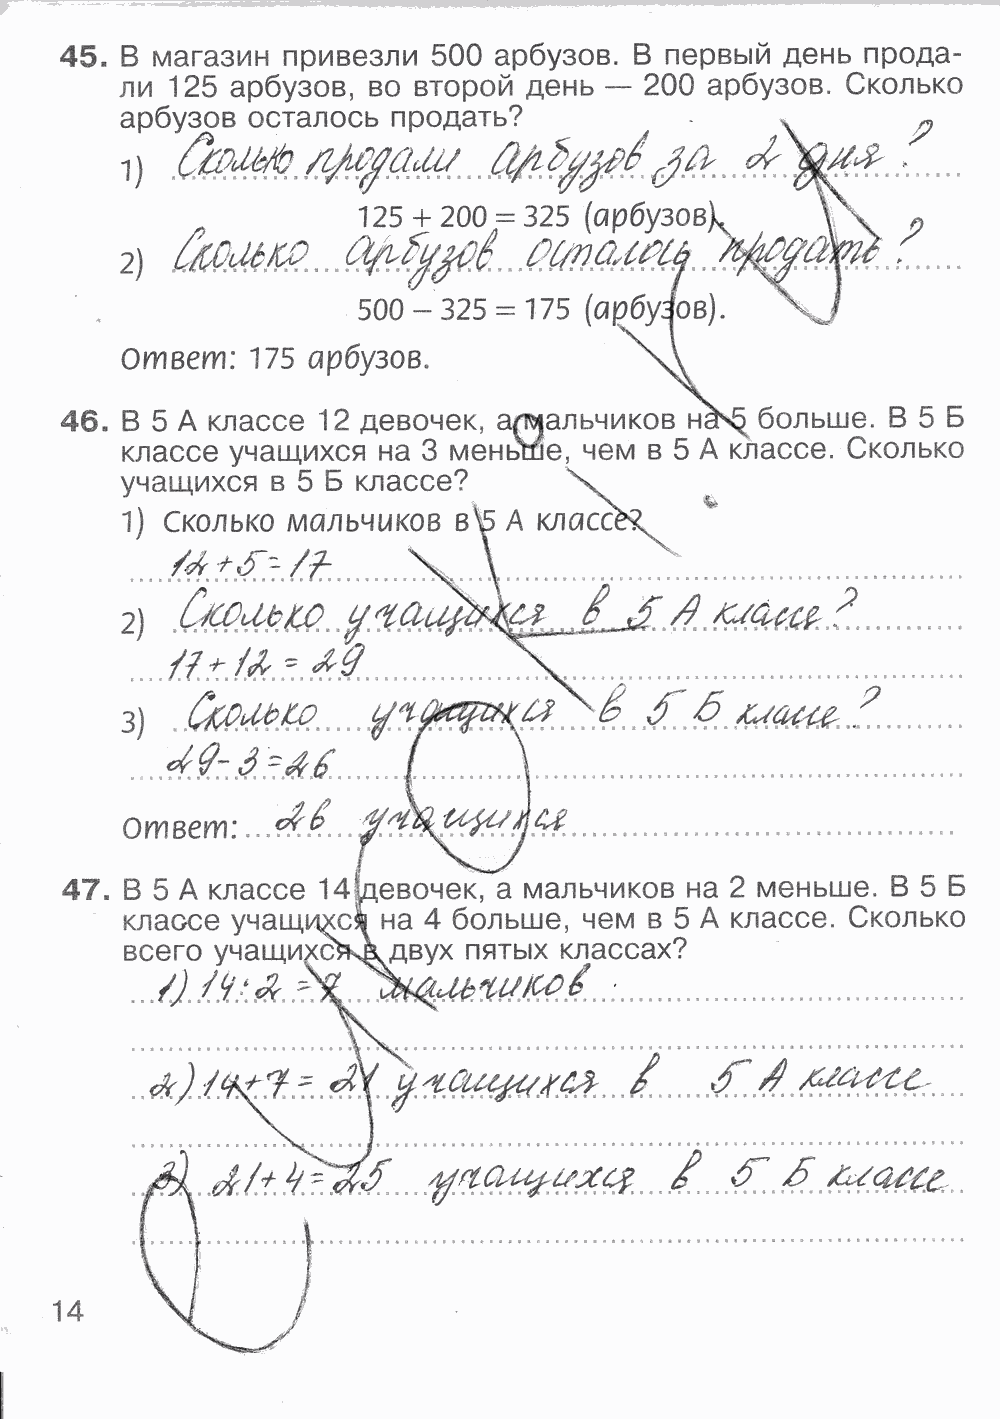 45. В магазин привезли 500 арбузов. В первый день прода-
ли 125 арбузов, во второй день — 200 арбузов. Сколько
арбузов осталось продать?
1) Сколько продали арбузов за 2 дня?
125 + 200 = 325 (арбузов).
2) Сколько арбузов осталось продать?
500 – 325 = 175 (арбузов).
Ответ: 175 арбузов.
46. В 5 А классе 12 девочек, а мальчиков на 5 больше. В 5 Б
классе учащихся на 3 меньше, чем в 5 А классе. Сколько
учащихся в 5 Б классе?
1) Сколько мальчиков в 5 А классе?
12+5=17
2) Сколько учащихся в 5 А классе?
17+12=29
3) Сколько учащихся в 5 Б классе?
29-3=26
Ответ: 26 учащихся
47. В 5 А классе 14 девочек, а мальчиков на 2 меньше. В 5 Б
классе учащихся на 4 больше, чем в 5 А классе. Сколько
всего учащихся в двух пятых классах?
1) 14:2=7 мальчиков
2) 14+7=21 учащихся в 5 А классе
3) 21+4=25 учащихся в 5 Б классе
14